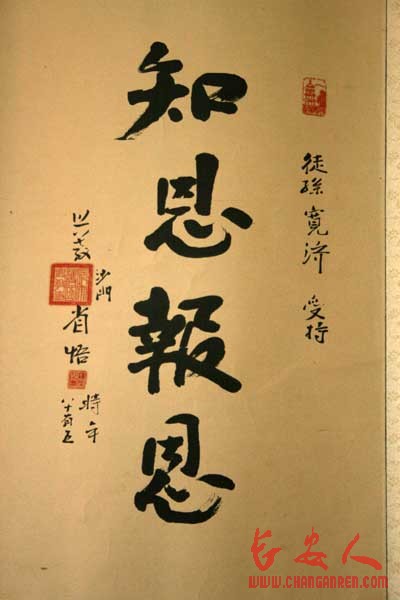 徒孫寬济 受持
知恩報恩
沙門肖悟
時年八十有五
长安人
WWW.CHANGANREN.COM